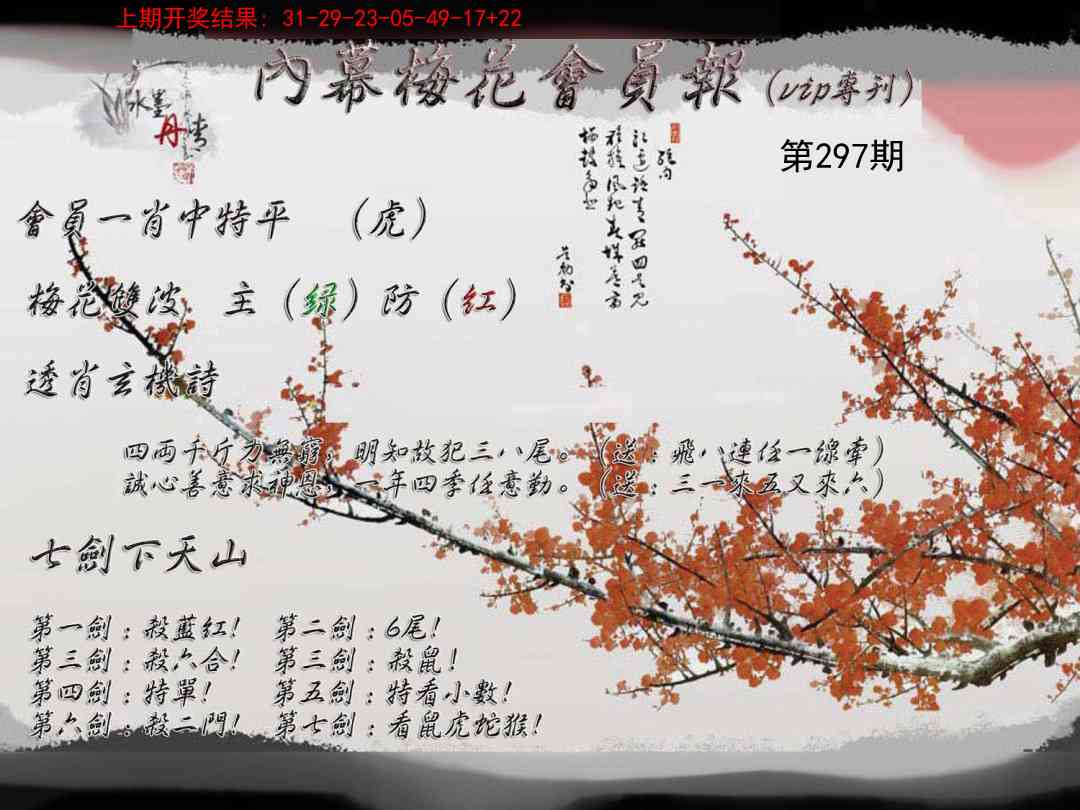 上期开奖结果：31-29-23-05-49-17+22
內幕梅花會員報（vip專刊）
水墨
丹青
第297期
會員一肖中特平　（虎）
梅花雙波　主（绿）防（红）
透肖玄機詩
四両千斤力無窮，明知故犯三八尾。（送：飛八連任一線牽）
誠心善意求神恩，一年四季任意勤。（送：三一來五又來六）
七劍下天山
第一劍：殺藍紅！　第二劍：6尾！
第三劍：殺六合！　第三劍：殺鼠！
第四劍：特單！　第五劍：特看小數！
第六劍：殺二門！　第七劍：看鼠虎蛇猴！